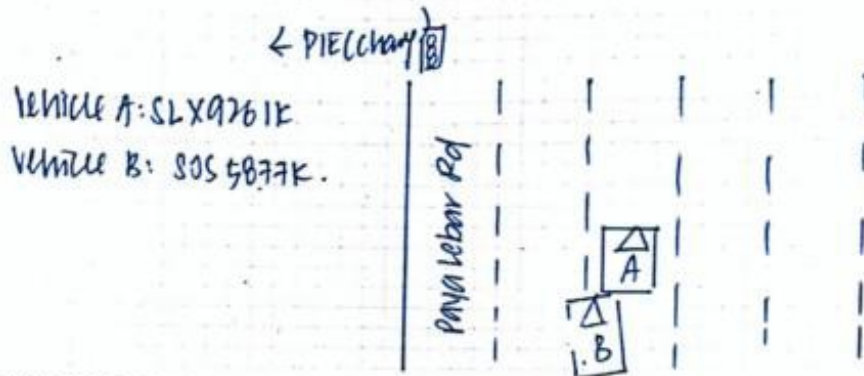 ← PIE (Changi)
Vehicle A: SLX9261K
Vehicle B: SDS 5877K.
Paya Lebar Rd
A
B